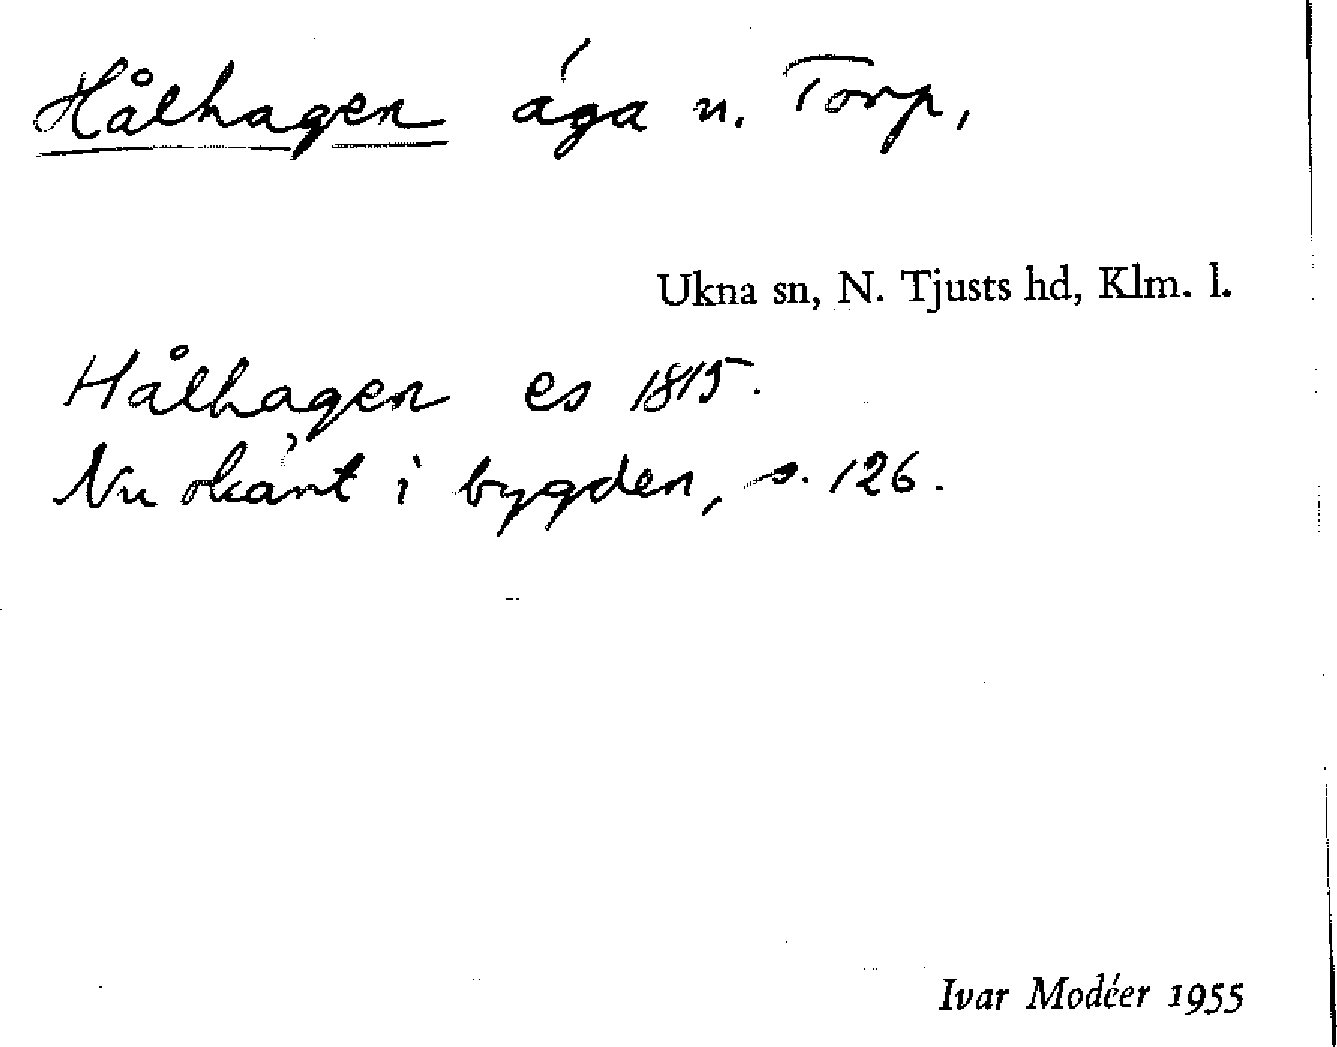 Hålhagen äga n. Torp,
Ukna sn, N. Tjusts hd, Klm. l.
Hålhagen es 1815.
Nu okänt i bygden, s. 126.
Ivar Modéer 1955